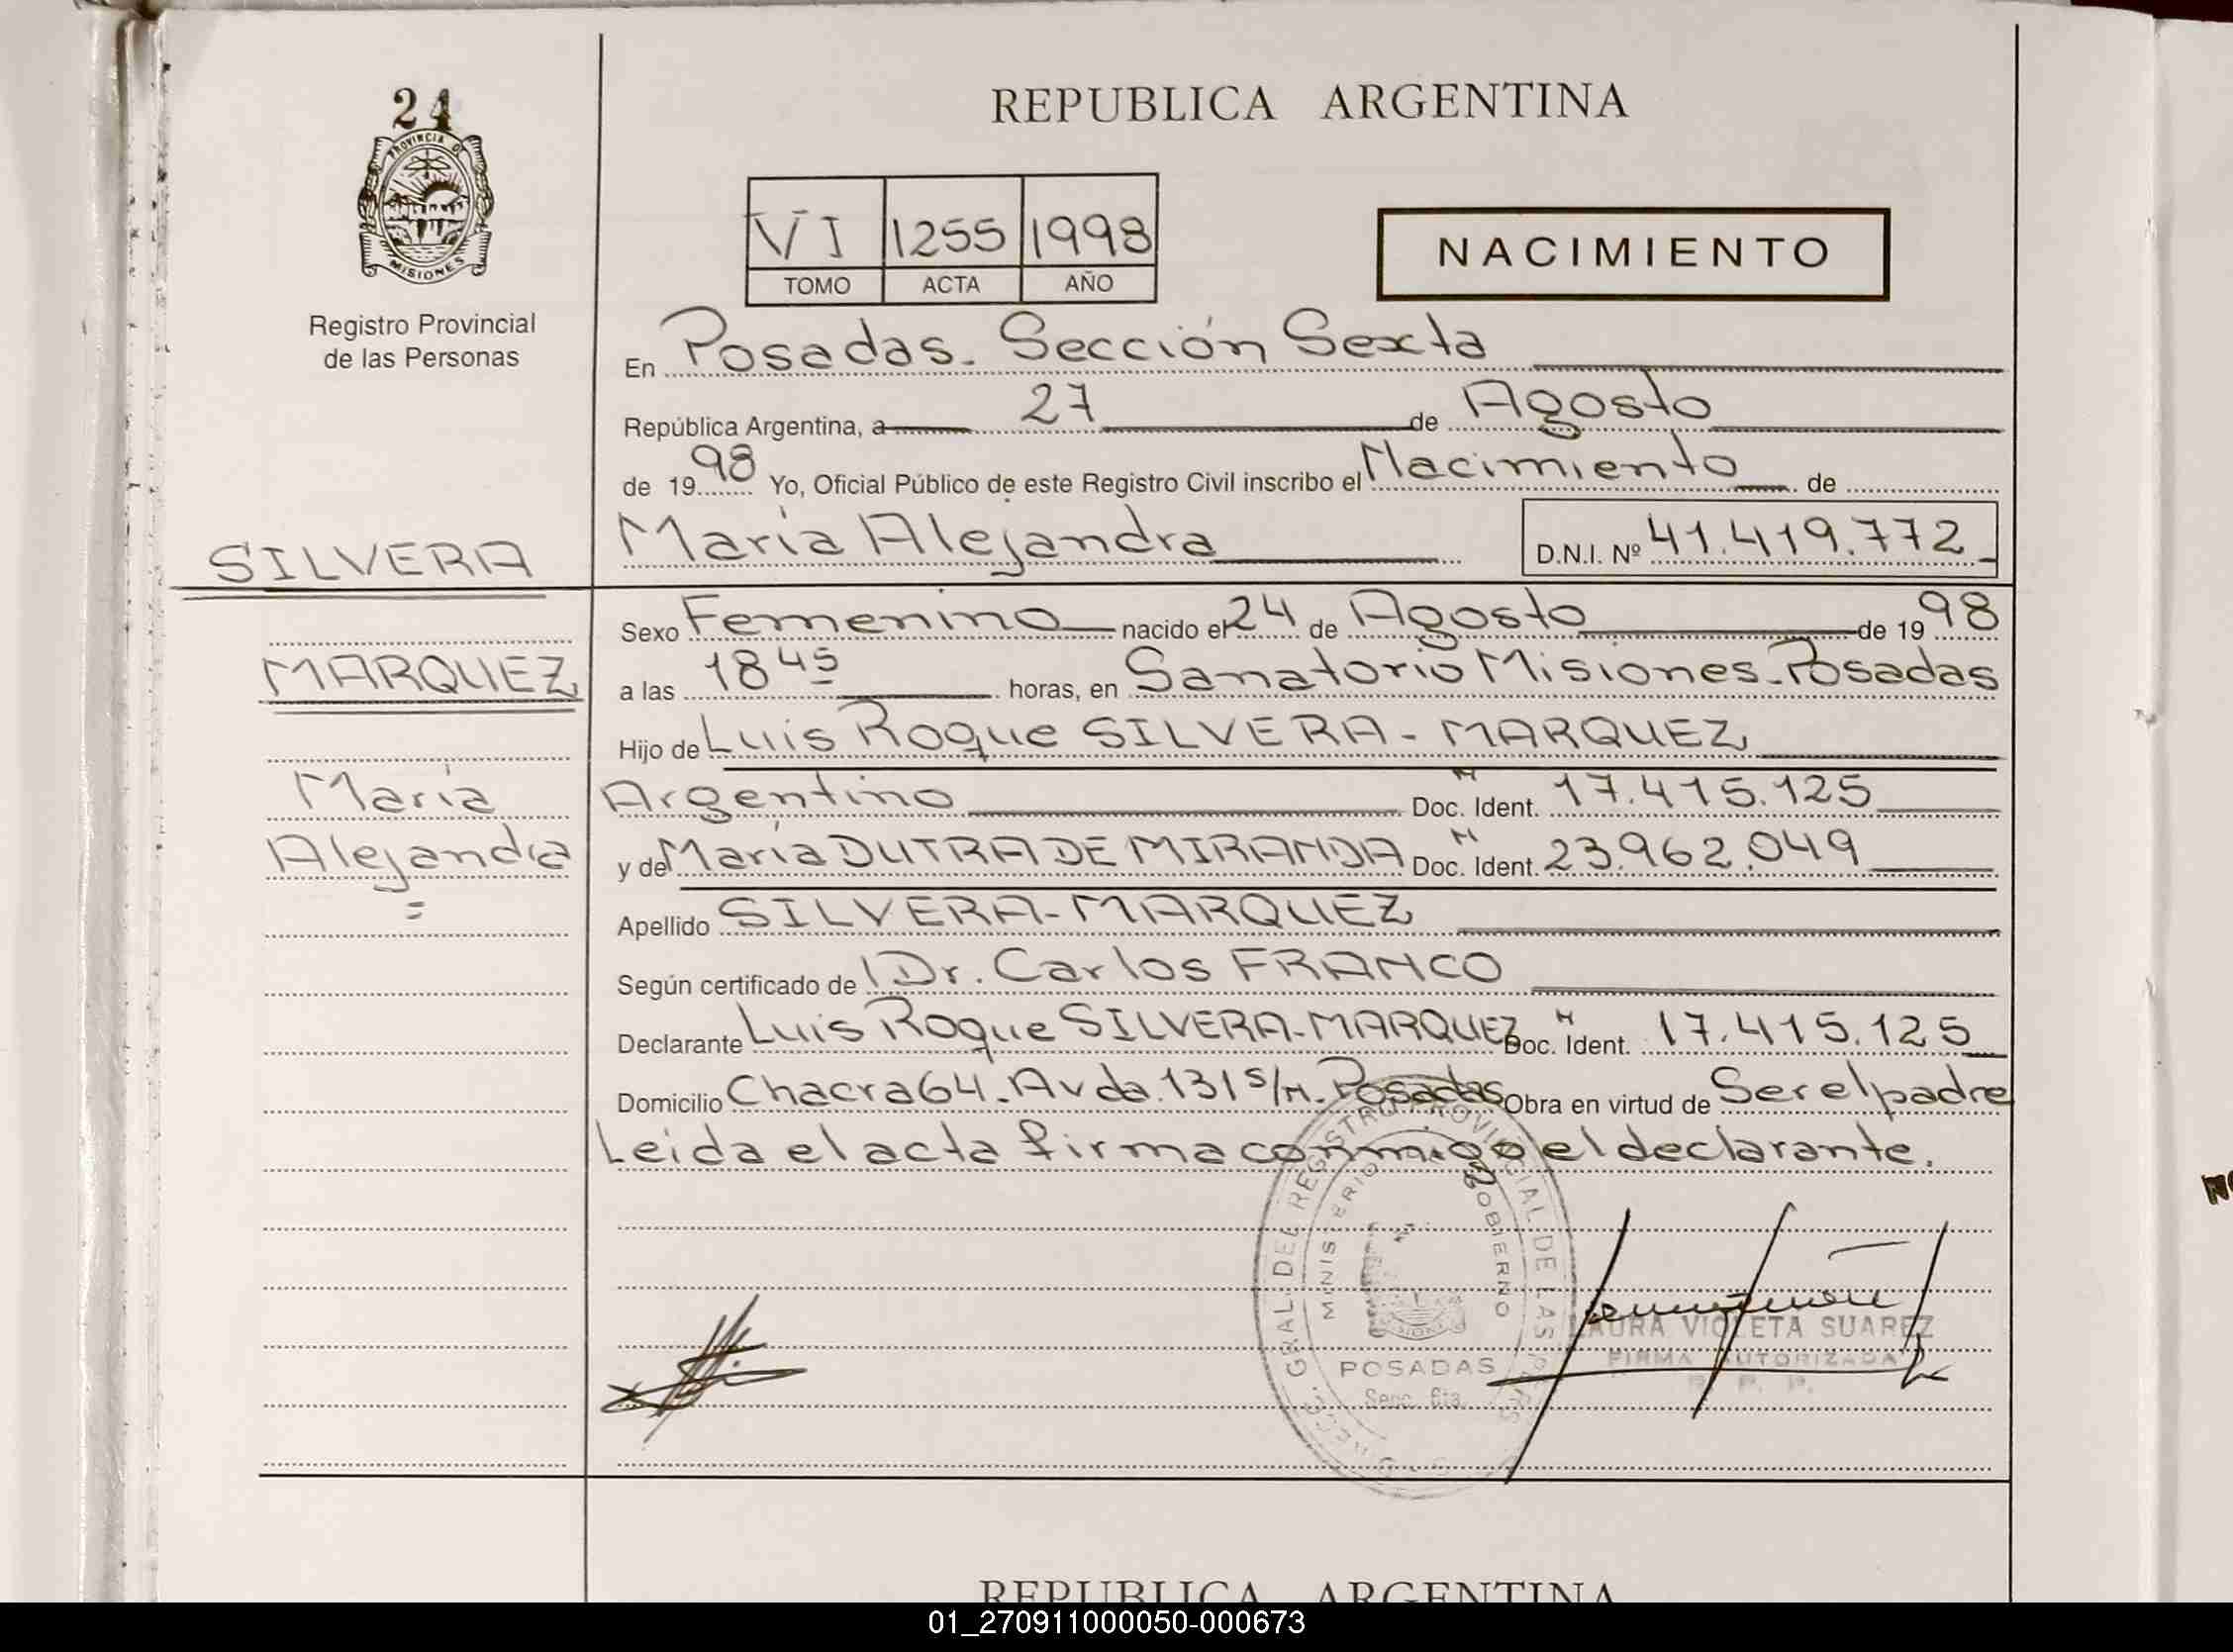 24
PROVINCIA D
MISIONES
Registro Provincial
de las Personas
SILVERA
MARQUEZ
María
Alejandra
=
REPUBLICA ARGENTINA
VI 1255 1998
TOMO ACTA AÑO
NACIMIENTO
En Posadas. Sección Sexta
República Argentina, a 27 de Agosto
de 19 98 Yo, Oficial Público de este Registro Civil inscribo el Nacimiento de
María Alejandra D.N.I. Nº 41.419.772
Sexo Femenino nacido el 24 de Agosto de 19 98
a las 18 45 horas, en Sanatorio Misiones - Posadas
Hijo de Luis Roque SILVERA - MARQUEZ
Argentino Doc. Ident. N 17.415.125
y de María DUTRA DE MIRANDA Doc. Ident. N 23.962.049
Apellido SILVERA - MARQUEZ
Según certificado de Dr. Carlos FRANCO
Declarante Luis Roque SILVERA - MARQUEZ Doc. Ident. N 17.415.125
Domicilio Chacra 64. Avda. 131 s/n. Posadas Obra en virtud de Ser el padre
Leída el acta firma conmigo el declarante.
GRAL DEL REGISTRO PROVINCIAL DE LAS
MINISTERIO GOBIERNO
POSADAS
Secc. 6ta.
LAURA VIOLETA SUAREZ
FIRMA AUTORIZADA
R. P. P.
REPUBLICA ARGENTINA
01_270911000050-000673